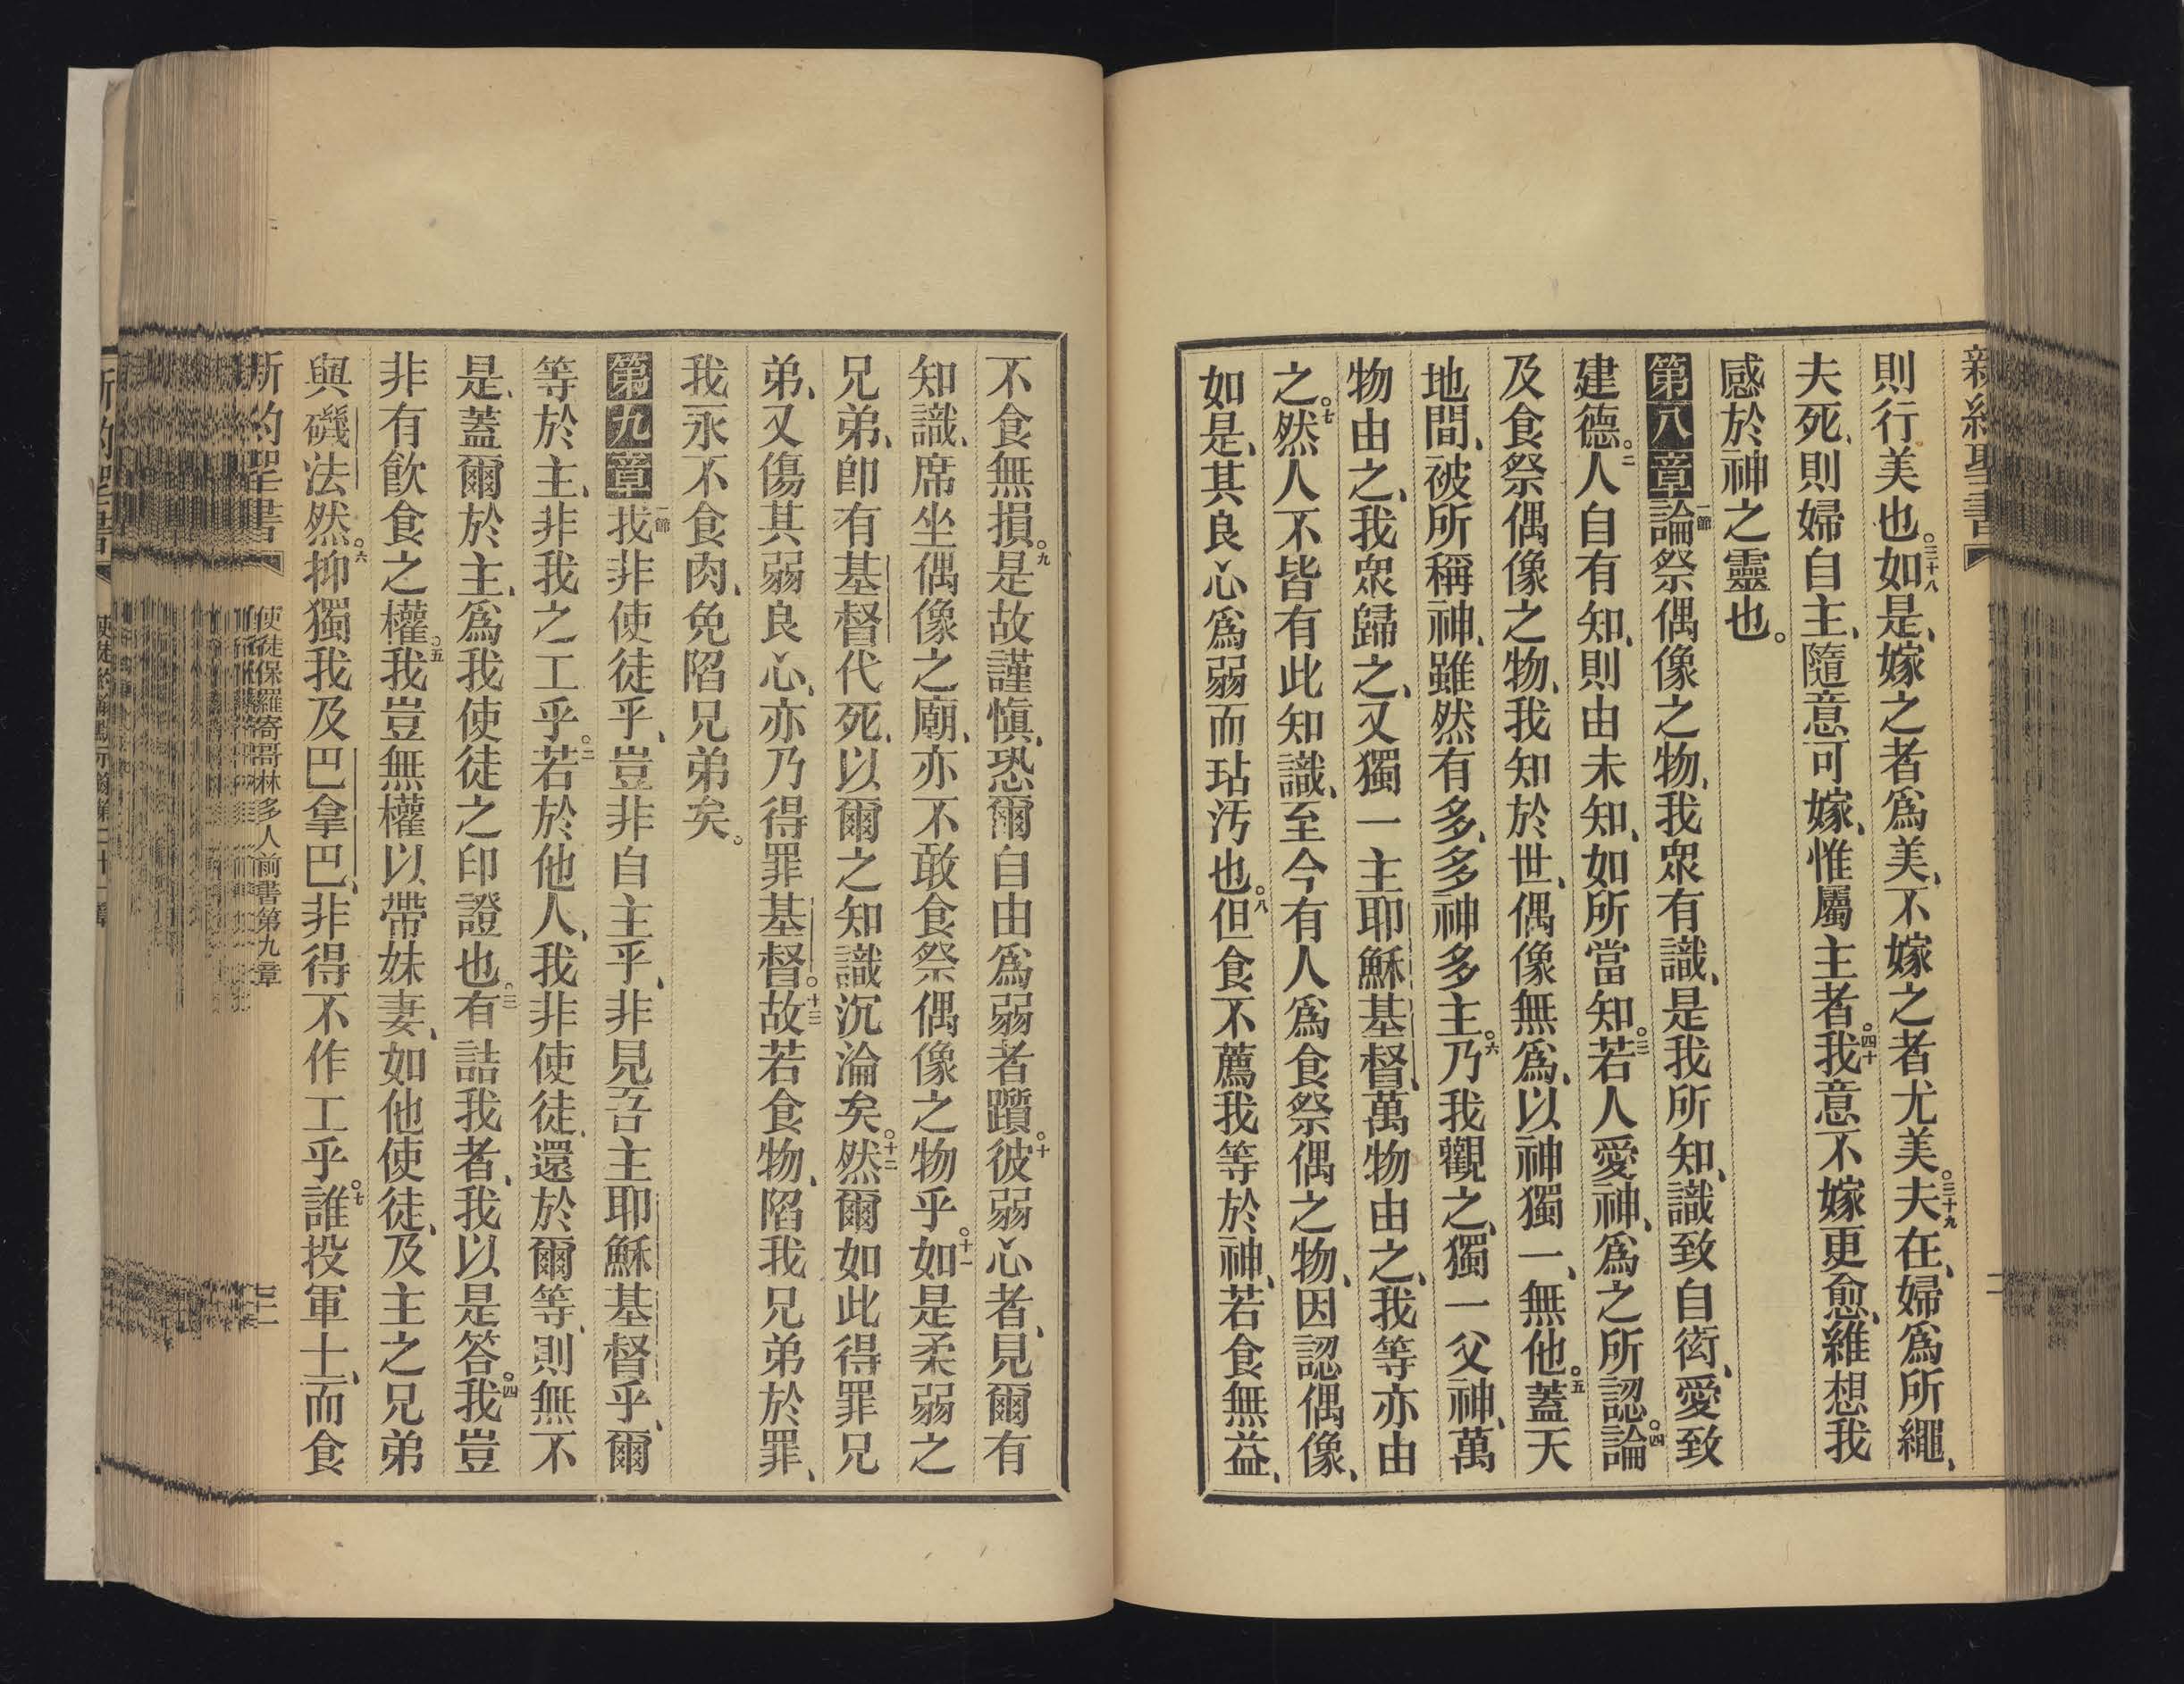 新約聖書
則行美也。三十八如是、嫁之者爲美、不嫁之者尤美。三十九夫在、婦爲所繩、
夫死、則婦自主、隨意可嫁、惟屬主者。四十我意不嫁更愈、維想我
感於神之靈也。
第八章一節論祭偶像之物、我衆有識、是我所知、識致自衒、愛致
建德。二人自有知、則由未知、如所當知。三若人愛神、爲之所認。四論
及食祭偶像之物、我知於世、偶像無爲、以神獨一、無他。五蓋天
地間、被所稱神、雖然有多、多神多主。六乃我觀之、獨一父神、萬
物由之、我衆歸之、又獨一主耶穌基督、萬物由之、我等亦由
之。七然人不皆有此知識、至今有人爲食祭偶之物、因認偶像、
如是、其良心爲弱而玷汚也。八但食不薦我等於神、若食無益、
不食無損。九是故謹愼、恐爾自由爲弱者躓。十彼弱心者、見爾有
知識、席坐偶像之廟、亦不敢食祭偶像之物乎。十一如是柔弱之
兄弟、卽有基督代死、以爾之知識沉淪矣。十二然爾如此得罪兄
弟、又傷其弱良心、亦乃得罪基督。十三故若食物、陷我兄弟於罪、
我永不食肉、免陷兄弟矣。
第九章一節我非使徒乎、豈非自主乎、非見吾主耶穌基督乎、爾
等於主、非我之工乎。二若於他人、我非使徒、還於爾等、則無不
是、蓋爾於主、爲我使徒之印證也。三有詰我者、我以是答。四我豈
非有飮食之權。五我豈無權以帶妹妻、如他使徒、及主之兄弟
與磯法然。六抑獨我及巴拿巴、非得不作工乎。七誰投軍士、而食
新約聖書 使徒保羅寄哥林多人前書第九章